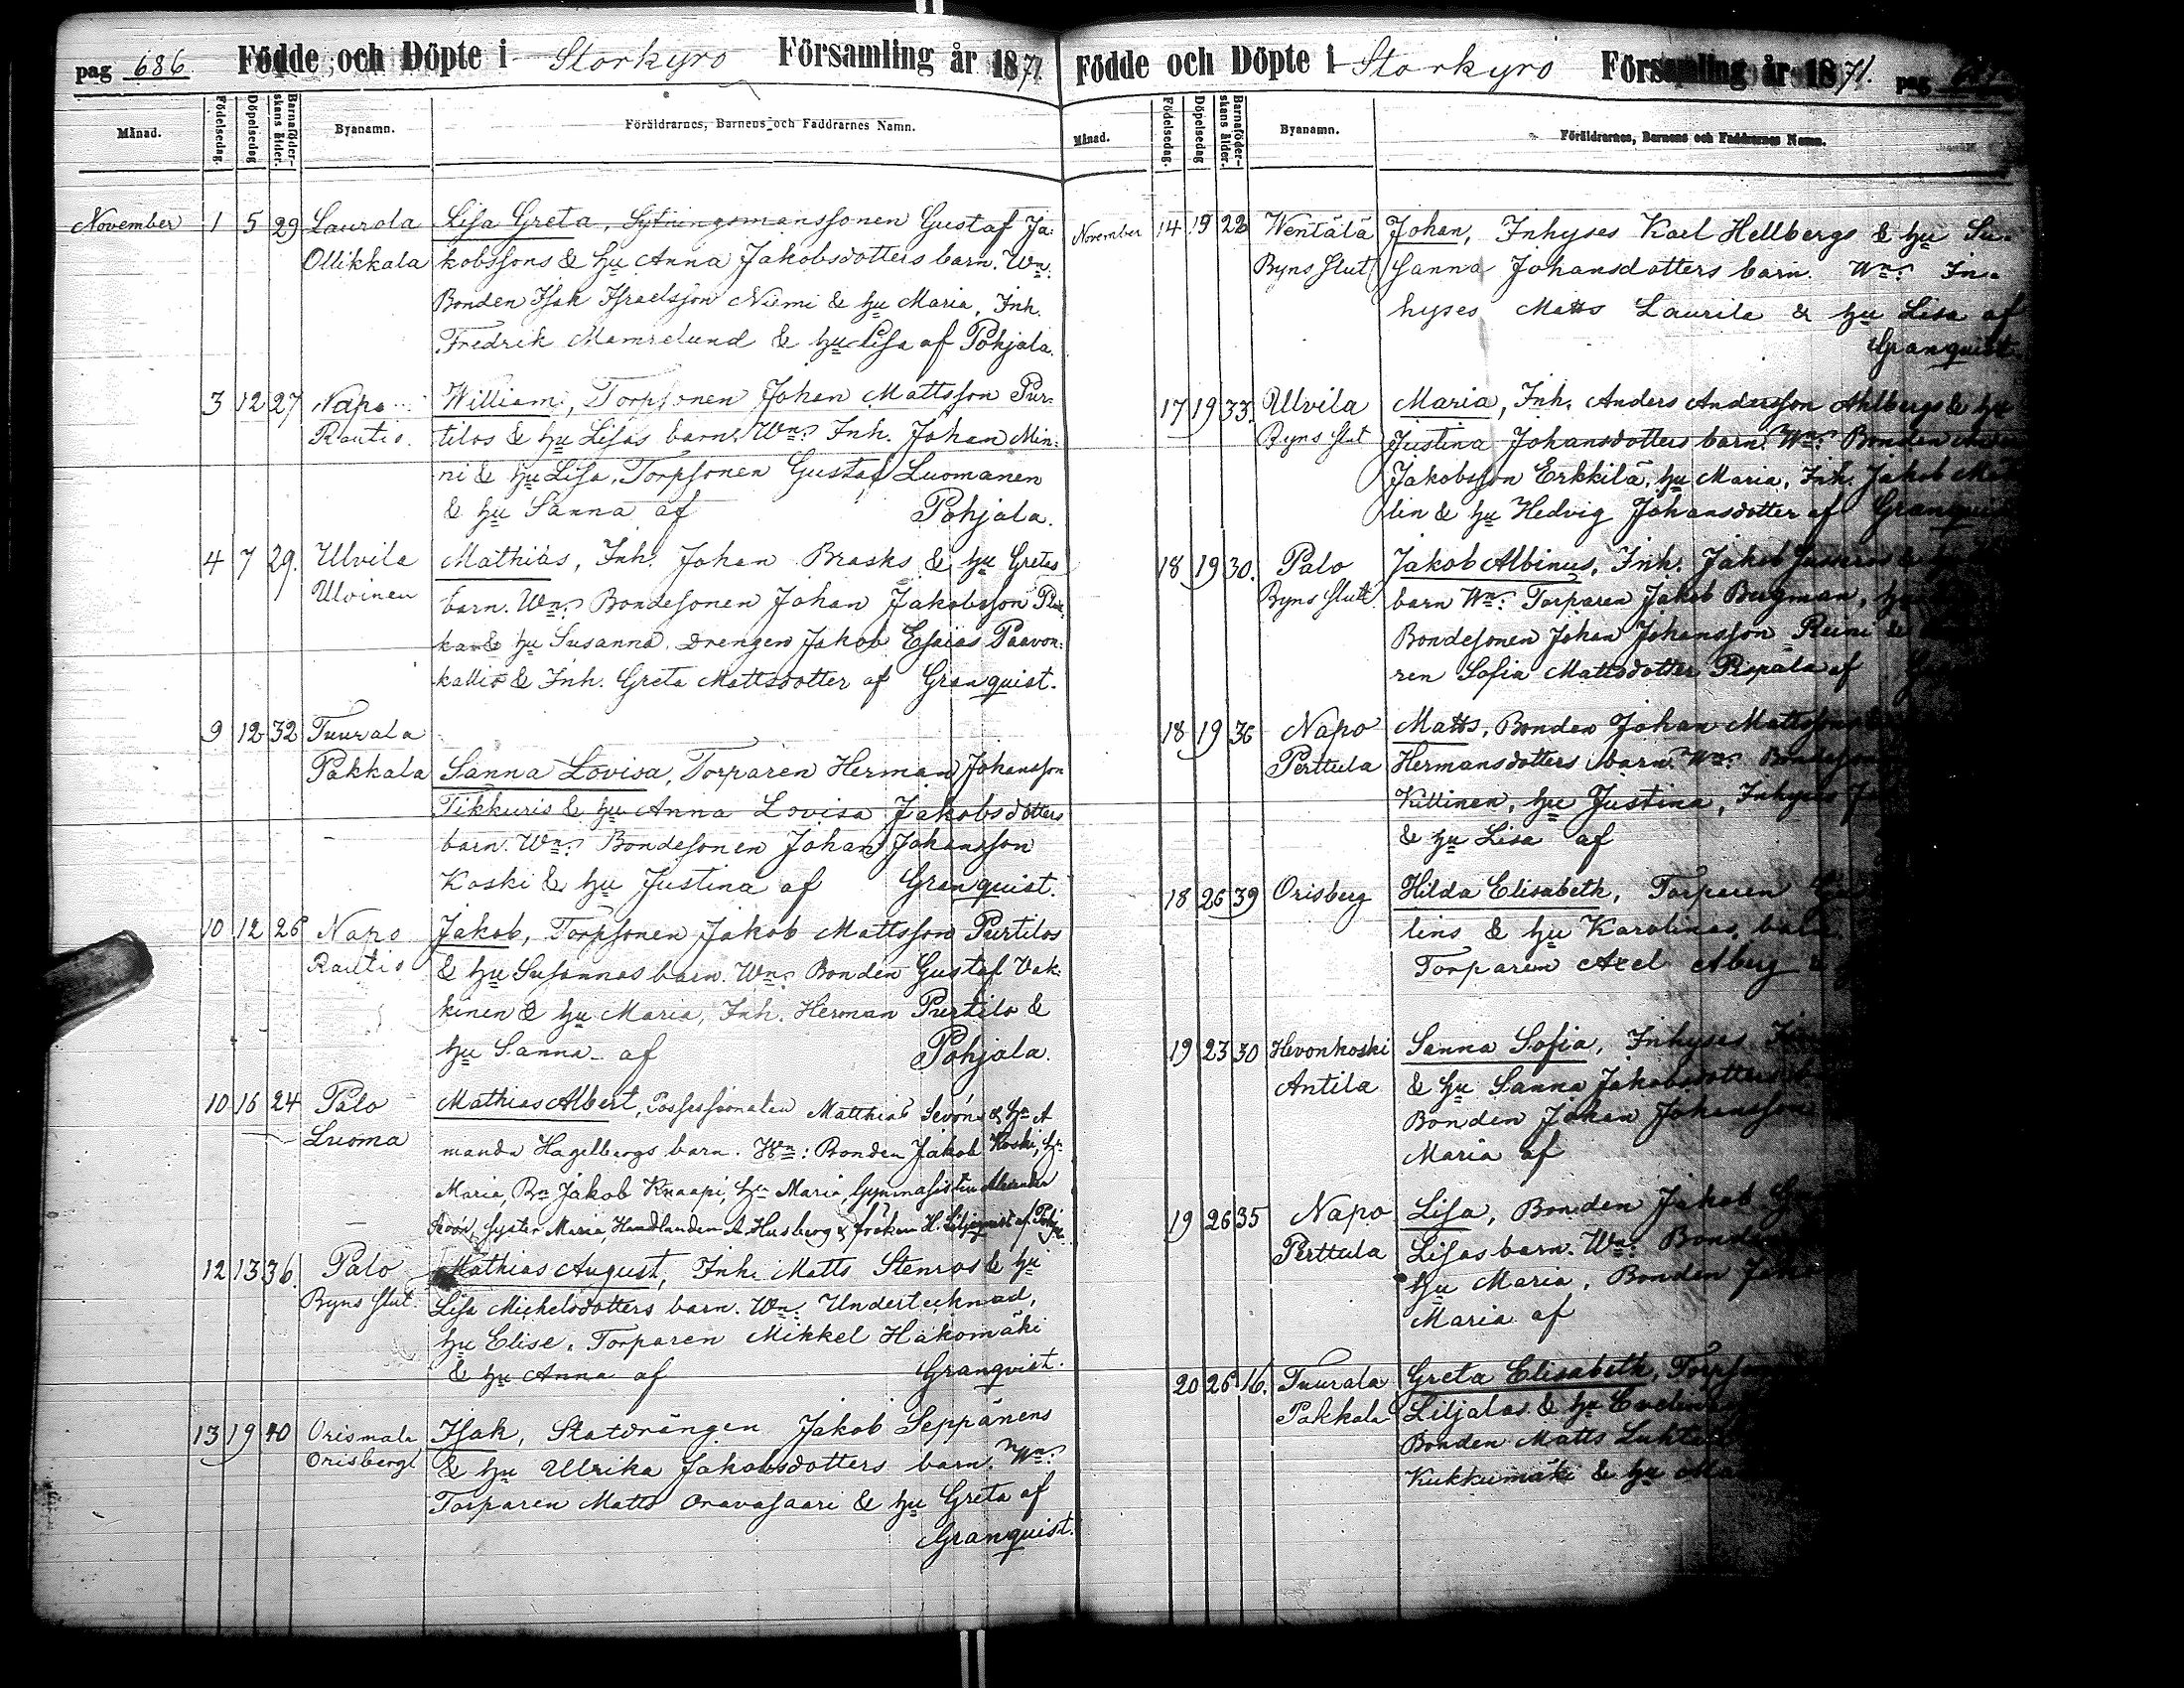 pag 686 Födde och Döpte i Storkyro Församling år 1871.
Månad. Födelsedag. Döpelsedag Barnaföderskans ålder. Byanamn. Föräldrarnes, Barnens och Faddrarnes Namn.
November 1 5 29 Laurola Lisa Greta, Sytningsmanssonen Gustaf Ja-
Ollikkala kobssons & hu Anna Jakobsdotters barn. Wn:
Bonden Isak Israelsson Niemi & hu Maria, Inh.
Fredrik Mamrelund & hu Lisa af Pohjala.
3 12 27 Napo William, Torpsonen Johan Mattsson Pur-
Rautio. tilos & hu Lisas barn. Wn: Inh. Johan Min-
ni & hu Lisa, Torpsonen Gustaf Luomanen
& hu Sanna af Pohjala.
4 7 29. Ulvila Mathias, Inh. Johan Brasks & hu Gretas
Ulvinen barn. Wn: Bondesonen Johan Jakobsson
ka & hu Susanna, Drengen Jakob Esaias Paavon-
kallio & Inh. Greta Mattsdotter af Granquist.
9 12 32 Tuurala
Pakkala Sanna Lovisa, Torparen Herman Johansson
Tikkuris & hu Anna Lovisa Jakobsdotters
barn. Wn: Bondesonen Johan Johansson
Koski & hu Justina af Granquist.
10 12 26 Napo Jakob, Torpsonen Jakob Mattsson Purtilos
Rautio & hu Susannas barn. Wn: Bonden Gustaf Vak-
kinen & hu Maria, Inh. Herman Purtilo &
hu Sanna af Pohjala.
10 16 24 Palo Mathias Albert, Possessionaten Matthias Sevóns & hu A
Luoma manda Hagelbergs barn. Wn: Bonden Jakob Koski, hu
Maria, Bn Jakob Knaapi, hu Maria, Gymnasisten Alexander
Sevón, syster Maria, Handlanden A. Husberg & fröken H. Liljeqvist af
12 13 36. Palo Mathias August, Inh. Matts Stenros & hu
Byns slut. Lisa Michelsdotters barn. Wn: Undertecknad,
hu Elise, Torparen Mikkel Hakomäki
& hu Anna af Granqvist.
13 19 40 Orismala Isak, Statdrängen Jakob Seppänens
Orisberg & hu Ulrika Jakobsdotters barn. Wn:
Torparen Matts Oravasaari & hu Greta af
Granquist.
Födde och Döpte i Storkyro Församling år 1871. pag
Månad. Födelsedag. Döpelsedag Barnaföderskans ålder. Byanamn. Föräldrarnes, Barnens och Faddrarnes Namn.
November 14 19 22 Wentälä Johan, Inhyses Karl Hellbergs & hu Su-
Byns slut sanna Johansdotters barn. Wn: In-
hyses Matts Laurila & hu Lisa af
Granquist.
17 19 33. Ulvila Maria, Inh. Anders Andersson Ahlbergs & hu
Byns slut Justina Johansdotters barn. Wn: Bonden
Jakobsson Erkkilä, hu Maria, Inh. Jakob
lin & hu Hedvig Johansdotter af Granquist
18 19 30. Palo Jakob Albinus, Inh. Jakob
Byns slut. barn Wn: Torparen Jakob Bergman,
Bondesonen Johan Johansson Reini &
ren Sofia Mattsdotter Pispala af
18 19 36 Napo Matts, Bonden Johan Mattssons
Perttula Hermansdotters barn. Wn:
Killinen, hu Justina, Inhyses
& hu Lisa af
18 26 39 Orisberg Hilda Elisabeth, Torparen
lins & hu Karolinas barn.
Torparen Axel Åberg
19 23 30 Hevonkoski Sanna Sofia, Inhyses
Antila & hu Sanna Jakobsdotters
Bonden Johan Johansson
Maria af
19 26 35 Napo Lisa, Bonden Jakob
Perttula Lisas barn. Wn: Bonden
hu Maria, Bonden
Maria af
20 26 16. Tuurala Greta Elisabeth,
Pakkala Liljalas & hu
Bonden Matts
Kukkumäki & hu